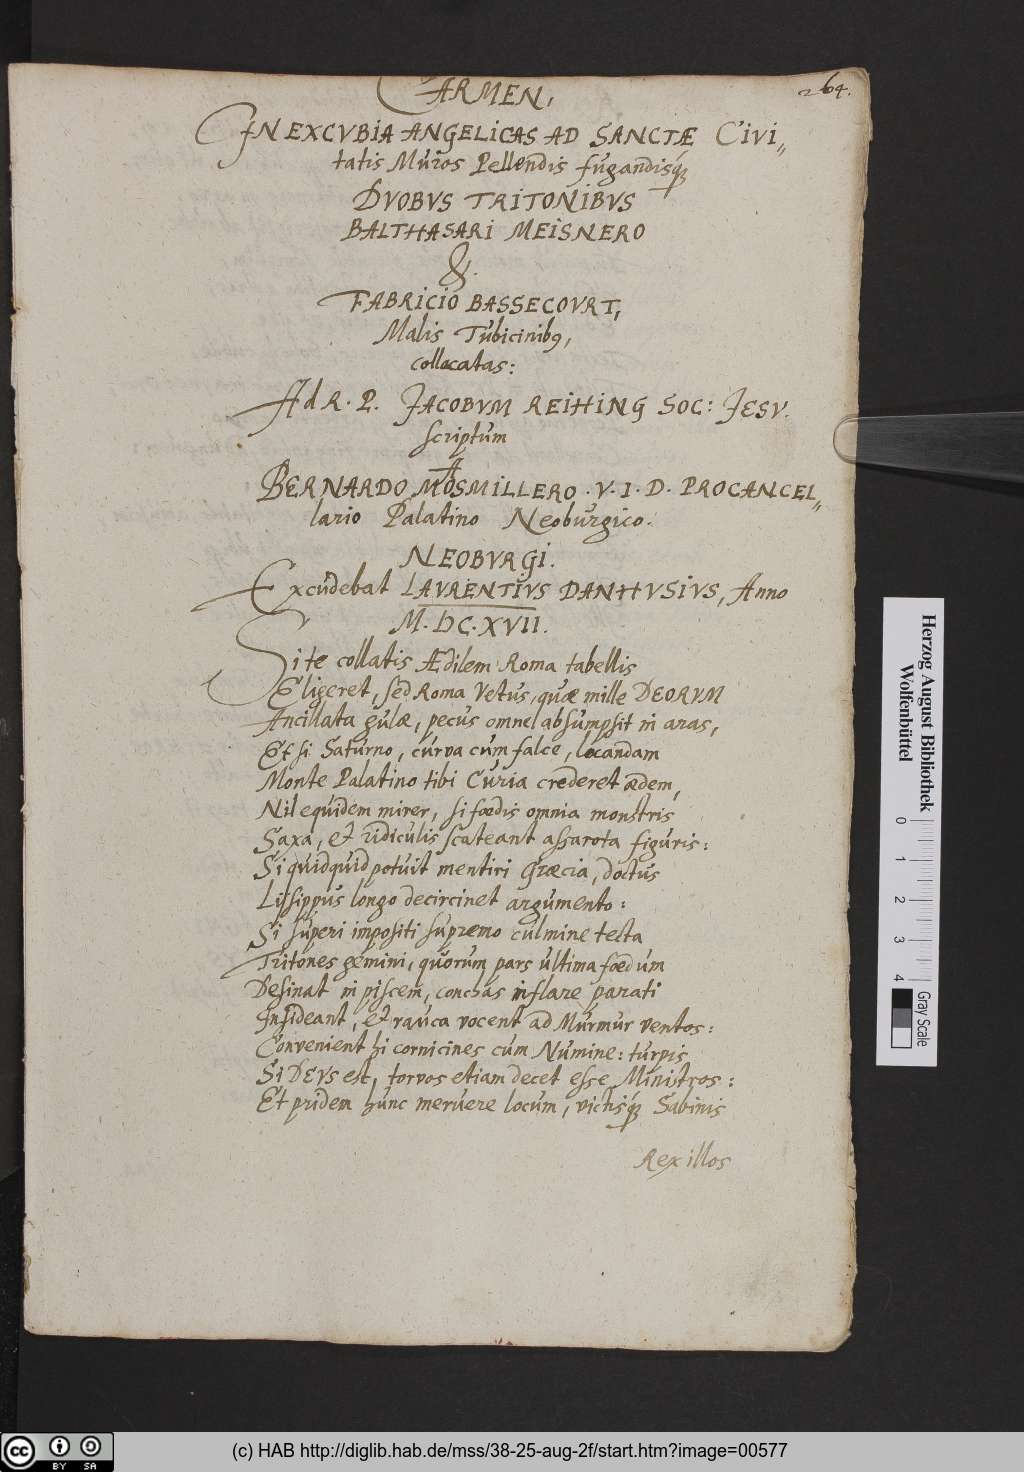 264.
CARMEN,
IN EXCVBIA ANGELICAS AD SANCTÆ CIVI„
tatis Muros Pellendis fugandisq́;
DVOBVS TRITONIBVS
BALTHASARI MEISNERO
&.
FABRICIO BASSECOVRT,
Malis Tubicinibꝰ,
collocatas:
Ad R. P. JACOBVM REIHING SOC: JESV.
scriptum
A
BERNARDO MOSMILLERO . V. I. D. PROCANCEL„
lario Palatino Neoburgico.
NEOBVRGI.
Excudebat LAVRENTIVS DANHVSIVS, Anno
M. DC. XVII.
Si te collatis Ædilem Roma tabellis
Eligeret, sed Roma Vetus, quæ mille DEORVM
Ancillata gulæ, pecus omne absumpsit in aras,
Et si Saturno, curva cum falce, locandam
Monte Palatino tibi Curia crederet ædem,
Nil equidem mirer, si fœdis omnia monstris
Saxa, et ridiculis scateant assarota figuris:
Si quidquid potuit mentiri Græcia, doctus
Lisippus longo decircinet argumento:
Si superi impositi supremo culmine tecta
Tritones gemini, quorum pars ultima fœdum
Desinat in piscem, conchas inflare parati
Insideant, et rauca vocent ad Murmur ventos:
Convenient hi cornicines cum Numine: turpis
Si DEVS est, torvos etiam decet esse Ministros:
Et pridem hunc meruere locum, victisq́; Sabinis
Rexillos
Herzog August Bibliothek
Wolfenbüttel
0 1 2 3 4
Gray Scale
cc BY SA
(c) HAB http://diglib.hab.de/mss/38-25-aug-2f/start.htm?image=00577